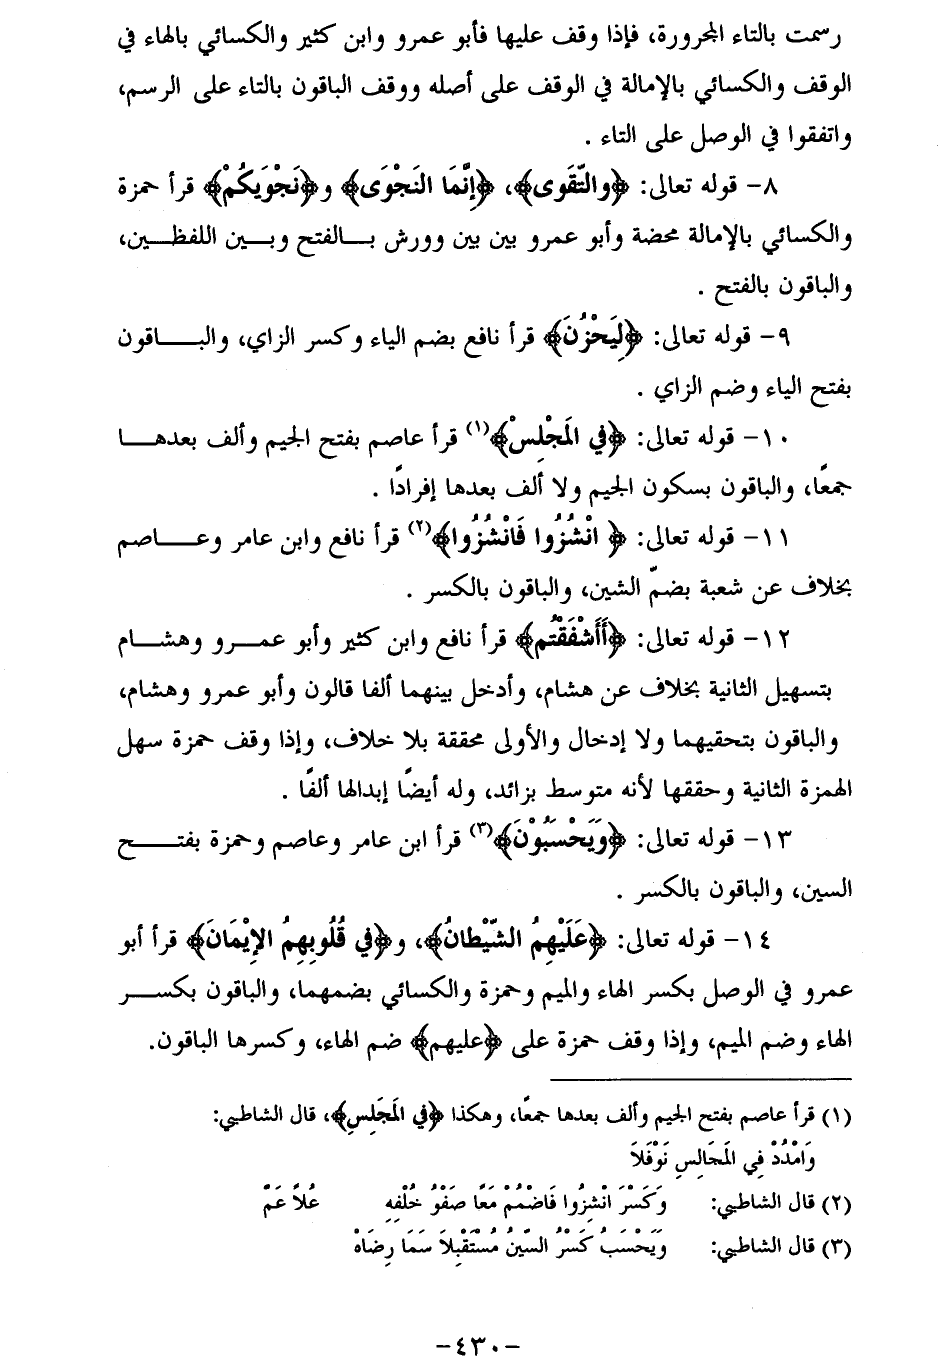 رسمت بالتاء المجرورة، فإذا وقف عليها فأبو عمرو وابن كثير والكسائي بالهاء في
الوقف والكسائي بالإمالة في الوقف على أصله ووقف الباقون بالتاء على الرسم،
واتفقوا في الوصل على التاء .
٨- قوله تعالى: ﴿والتَّقوى﴾، ﴿إنَّمَا النَجْوَى﴾ و﴿نَجْوَيكُمْ﴾ قرأ حمزة
والكسائي بالإمالة محضة وأبو عمرو بين بين وورش بـــالفتح وبـــين اللفظـــين،
والباقون بالفتح .
٩- قوله تعالى: ﴿لِيَحْزُنَ﴾ قرأ نافع بضم الياء وكسر الزاي، والبـــــاقون
بفتح الياء وضم الزاي .
١٠- قوله تعالى: ﴿في المَجْلِسْ﴾(١) قرأ عاصم بفتح الجيم وألف بعدهـــا
جمعًا، والباقون بسكون الجيم ولا ألف بعدها إفرادًا .
١١- قوله تعالى: ﴿ انْشُزُوا فَانْشُزُوا﴾(٢) قرأ نافع وابن عامر وعـــــاصم
بخلاف عن شعبة بضمّ الشين، والباقون بالكسر .
١٢- قوله تعالى: ﴿أَأَشْفَقْتُم﴾ قرأ نافع وابن كثير وأبو عمـــرو وهشـــام
بتسهيل الثانية بخلاف عن هشام، وأدخل بينهما ألفا قالون وأبو عمرو وهشام،
والباقون بتحقيهما ولا إدخال والأولى محققة بلا خلاف، وإذا وقف حمزة سهل
الهمزة الثانية وحققها لأنه متوسط بزائد، وله أيضًا إبدالها ألفًا .
١٣- قوله تعالى: ﴿وَيَحْسَبُوْنَ﴾(٣) قرأ ابن عامر وعاصم وحمزة بفتـــــح
السين، والباقون بالكسر .
١٤- قوله تعالى: ﴿عَلَيْهِمُ الشَّيْطانُ﴾، و﴿في قُلُوبِهِمُ الإِيْمَانَ﴾ قرأ أبو
عمرو في الوصل بكسر الهاء والميم وحمزة والكسائي بضمهما، والباقون بكســـر
الهاء وضم الميم، وإذا وقف حمزة على ﴿عليهم﴾ ضم الهاء، وكسرها الباقون.
(١) قرأ عاصم بفتح الجيم وألف بعدها جمعًا، وهكذا ﴿في المَجَلِسِ﴾، قال الشاطبي:
وَامْدُدْ فِي المَجَالِسِ نَوْفَلاَ
(٢) قال الشاطبي: وَكَسْرَ انْشِزُوا فَاضْمُمْ مَعًا صَفْوُ خُلْفِهِ عُلاً عَمَّ
(٣) قال الشاطبي: وَيَحْسَبُ كَسْرُ السِّينُ مُسْتَقْبِلاَ سَمَا رِضَاهُ
-٤٣٠-